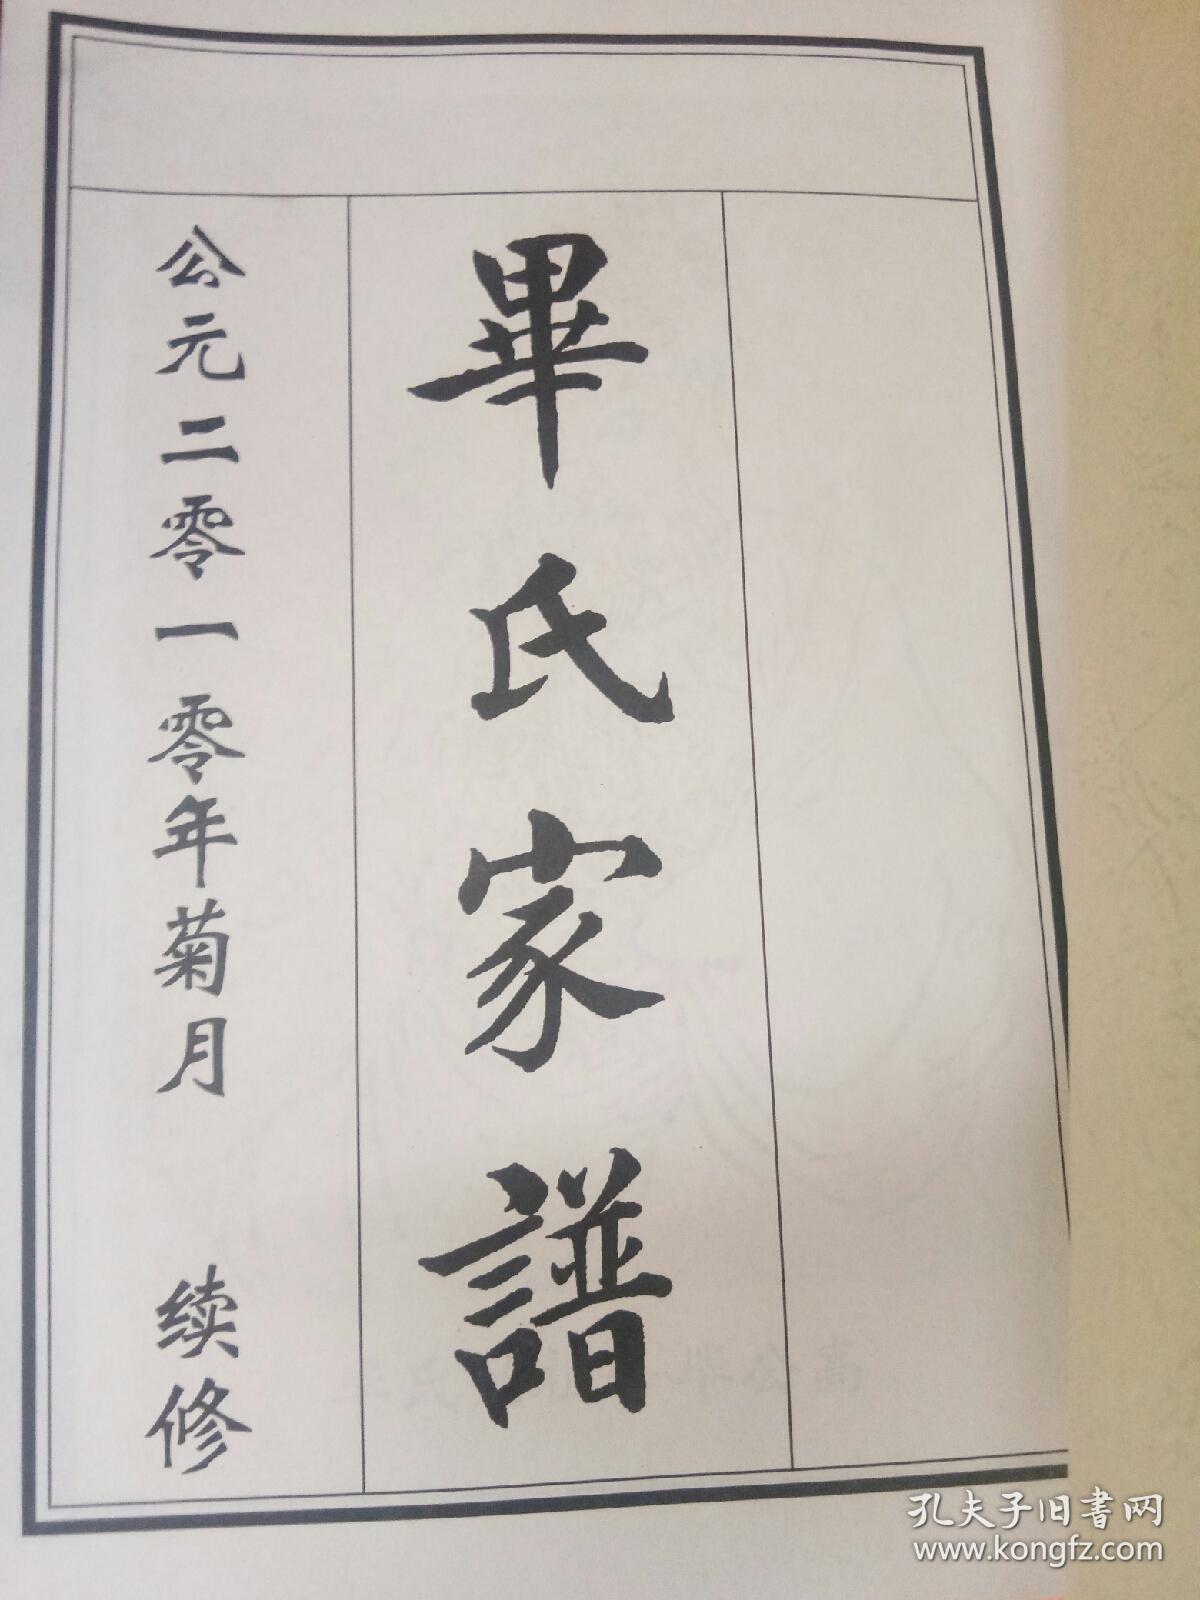 畢氏家譜
公元二零一零年菊月 续修
孔夫子旧书网
www.kongfz.com